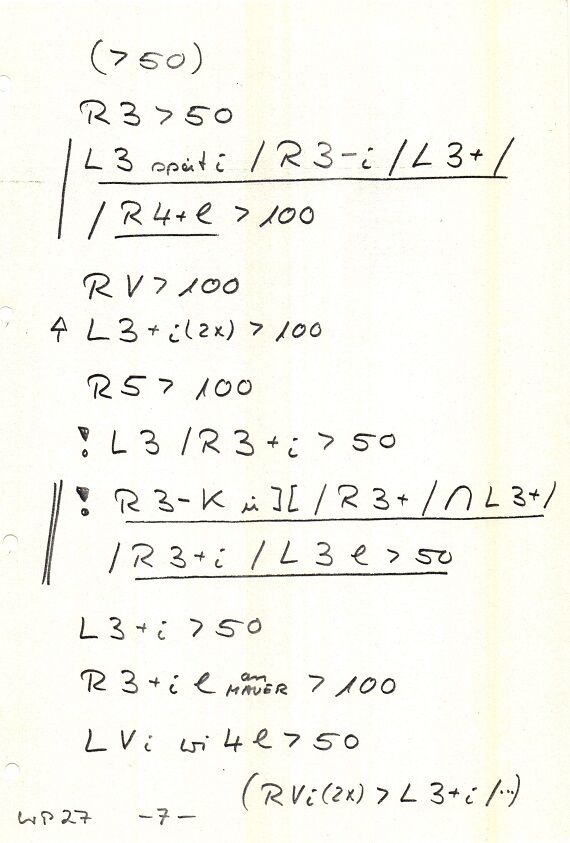 (>50)
R3>50
L3 spät i /R3-i/L3+/
/R4+l >100
RV>100
L3+i(2x)>100
R5> 100
! L3 /R3+i >50
! R3-K ü ][ /R3+/∩L3+/
/R3+i /L3 l >50
L3+i >50
R3+i l an MAUER >100
LVi wi 4l >50
(RVi(2x)>L3+i/··)
WP27 -7-